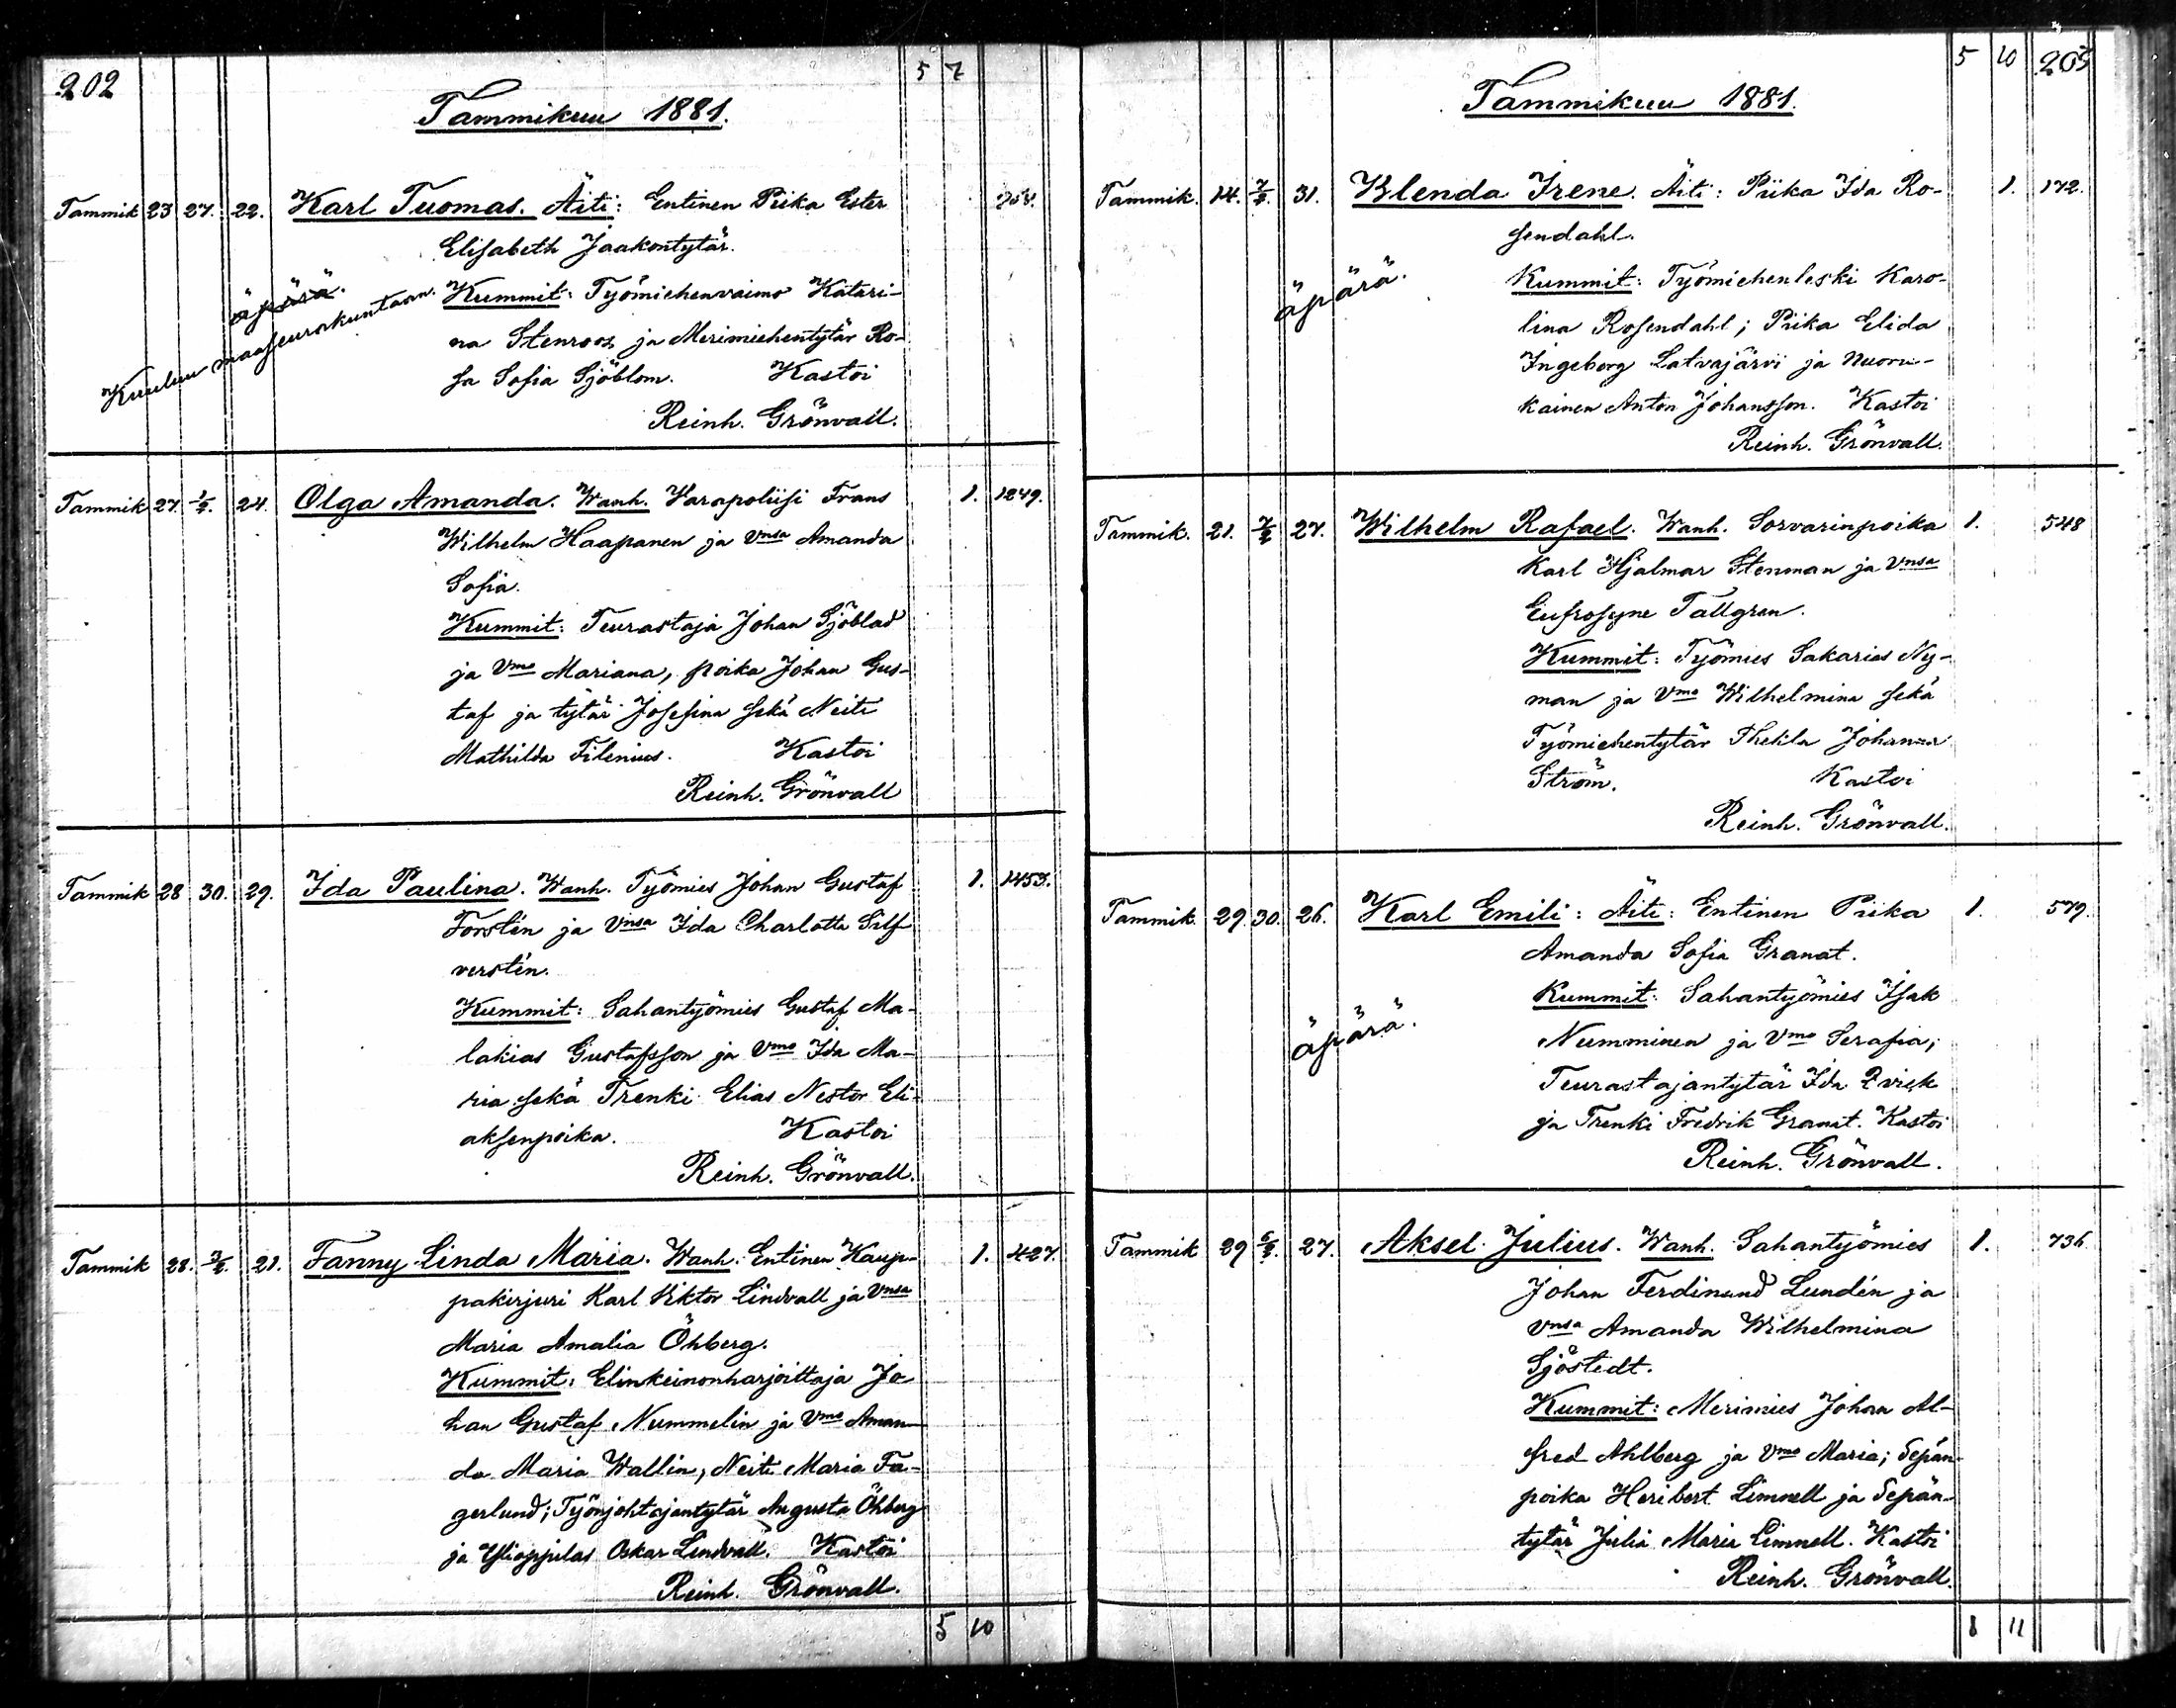 202
5 7
Tammikuu 1881.
Tammik 23 27. 22. Karl Tuomas. Äiti: Entinen Piika Ester
Elisabeth Jaakontytär.
äpärä.
Kuuluu maaseurakuntaan.
Kummit: Työmiehenvaimo Katari-
na Stenroos ja Merimiehentytär Ro-
sa Sofia Sjöblom. Kastoi
Reinh. Grönvall.
Tammik 27. 1/2. 24. Olga Amanda. Wanh. Varapoliisi Frans 1. 1249.
Wilhelm Haapanen ja Vnsa Amanda
Sofia.
Kummit: Teurastaja Johan Sjöblad
ja Vmo Mariana, poika Johan Gus-
taf ja tytär Josefina sekä Neiti
Mathilda Filenius. Kastoi
Reinh. Grönvall
Tammik 28 30. 29. Ida Paulina. Wanh. Työmies Johan Gustaf 1. 1453.
Forstén ja Vnsa Ida Charlotta Silf
verstén.
Kummit: Sahantyömies Gustaf Ma-
lakias Gustafsson ja Vmo Ida Ma-
ria sekä Trenki Elias Nestor Eli-
aksenpoika. Kastoi
Reinh. Grönvall.
Tammik 28. 2/2. 21. Fanny Linda Maria. Wanh: Entinen Kaup- 1. 427.
pakirjuri Karl Viktor Lindvall ja Vnsa
Maria Amalia Öhberg.
Kummit: Elinkeinonharjoittaja Jo
han Gustaf Nummelin ja Vmo Aman-
da Maria Wallin, Neiti Maria Fa-
gerlund; Työnjohtajantytär Augusta Öhberg
ja Ylioppilas Oskar Lindvall. Kastoi
Reinh. Grönvall.
5 10
5 10 203
Tammikuu 1881.
Tammik. 14. 31. Blenda Irene. Äiti: Piika Ida Ro- 1. 172.
sendahl.
äpärä.
Kummit: Työmiehenleski Karo-
lina Rosendahl; Piika Elida
Ingeborg Latvajärvi ja nuoru-
kainen Anton Johansson. Kastoi
Reinh. Grönvall.
Tammik. 21. 27. Wilhelm Rafael. Wanh. Sorvarinpoika 1. 548
Karl Hjalmar Stenman ja Vnsa
Eufrosyne Tallgren.
Kummit: Työmies Sakarias Ny-
man ja Vmo Wilhelmina sekä
Työmiehentytär Thekla Johanna
Ström. Kastoi
Reinh. Grönvall.
Tammik. 29. 30. 26. Karl Emili: Äiti: Entinen Piika 1. 579.
Amanda Sofia Granat.
äpärä.
Kummit: Sahantyömies Isak
Numminen ja Vmo Serafia;
Teurastajantytär Ida Qvick
ja Trenki Fredrik Granat. Kastoi
Reinh. Grönvall.
Tammik 29 6/2. 27. Aksel Julius. Wanh. Sahantyömies 1. 736.
Johan Ferdinand Lundén ja
Vnsa Amanda Wilhelmina
Sjöstedt.
Kummit: Merimies Johan Al-
fred Ahlberg ja Vmo Maria; Sepän-
poika Heribert Limnell ja Sepän-
tytär Julia Maria Limnell. Kastoi
Reinh. Grönvall.
8 11